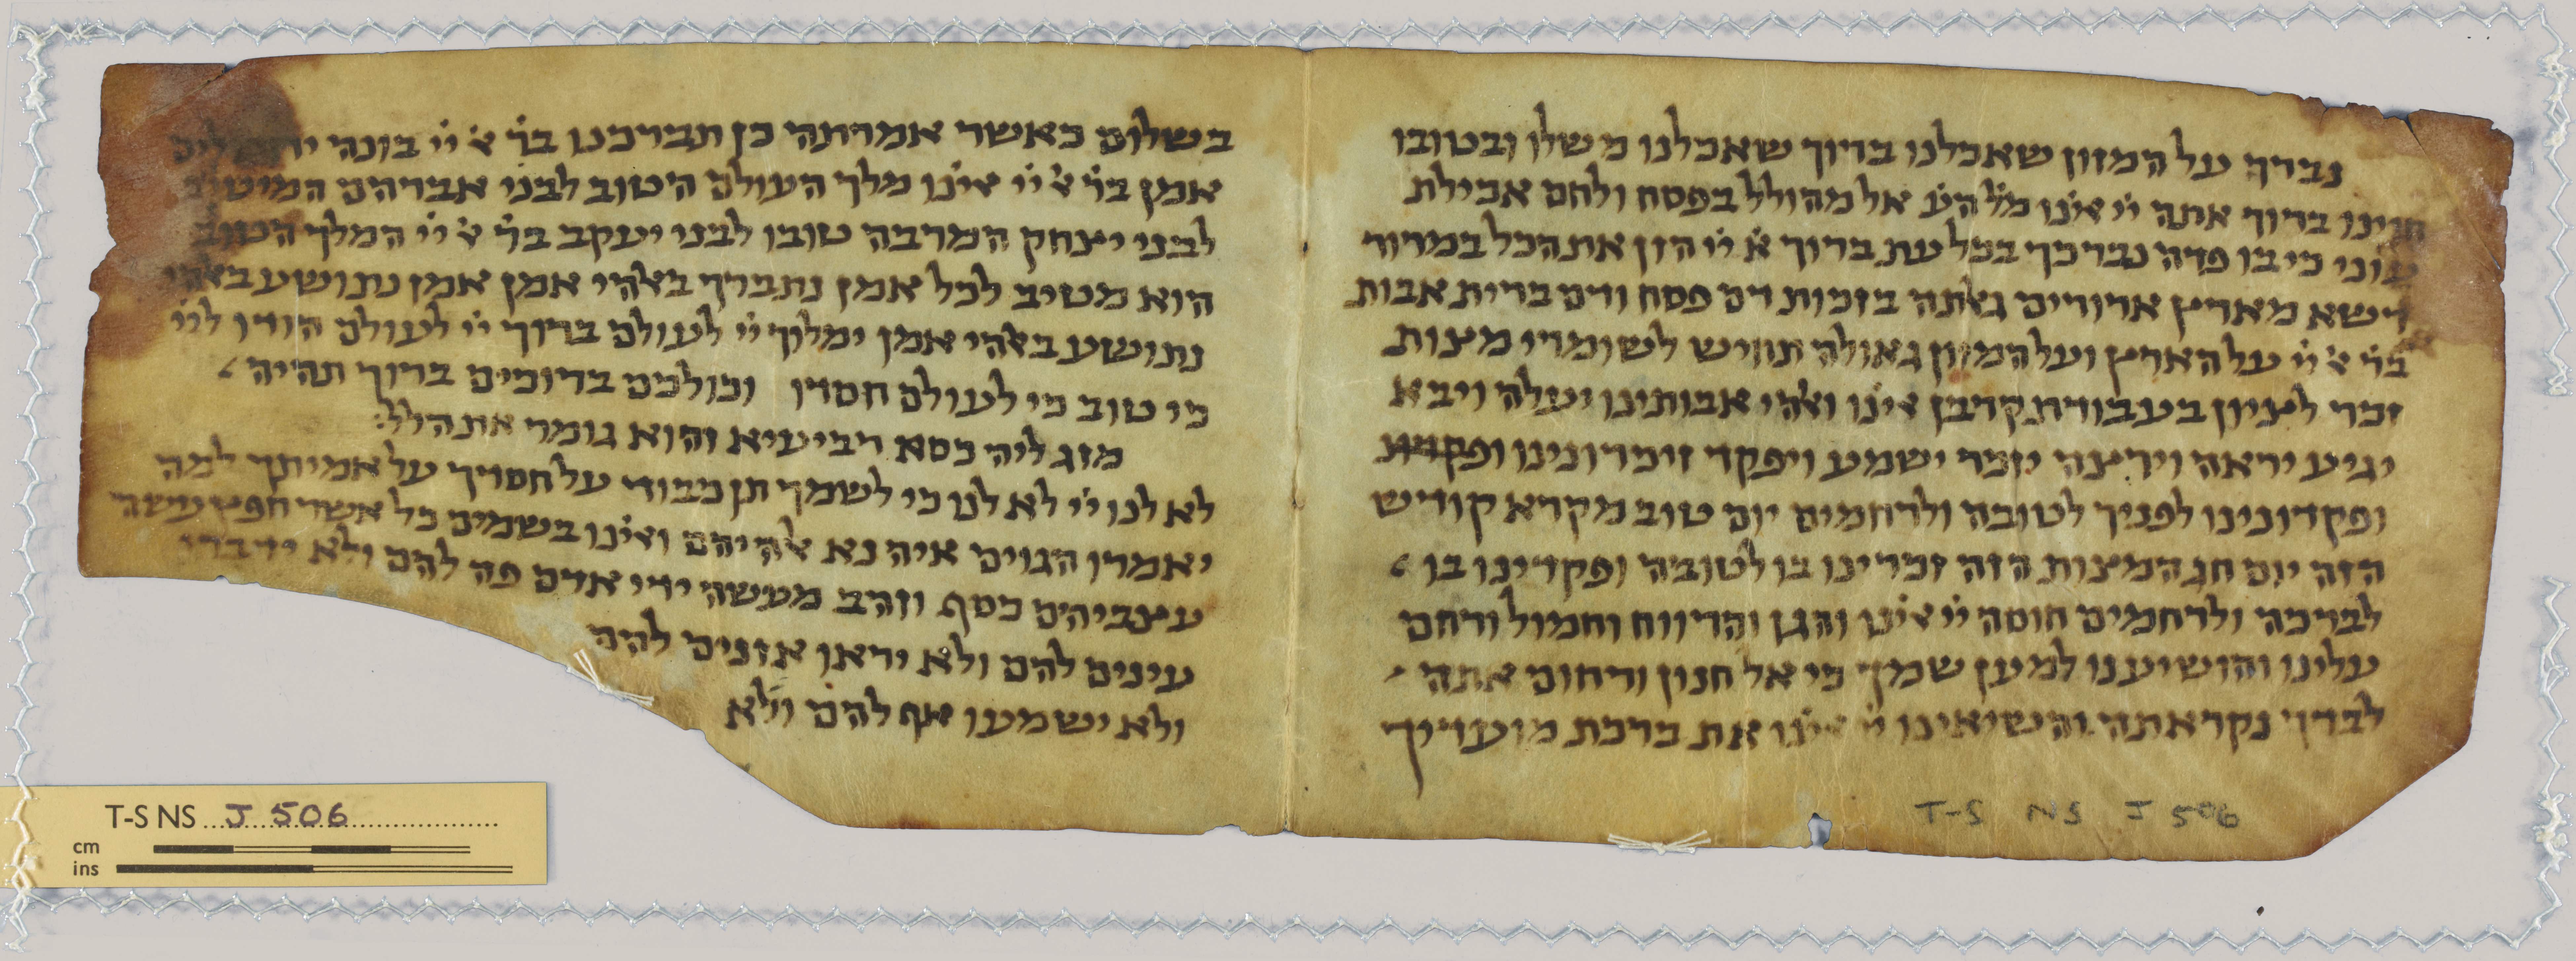 נברך על המזון שאכלנו ברוך שאכלנו משלו ובטובו
חיינו ברוך אתה יי אינו מל הע אל מהולל בפסח ולחם אכילת
עוני כי בו פדה נברכך בכל עת ברוך א יי הזן את הכל במרור
דשא מארץ ארורים גאלתה בזכות דם פסח ודם ברית אבות
בר א יי על הארץ ועל המזון גאולה תחיש לשומרי מצות
זכר לציון בעבודת קרבן אינו ואלהי אבותינו יעלה ויבא
יגיע יראה וירצה יזכר ישמע ויפקד זיכרונינו
ופקדונינו לפניך לטובה ולרחמים יום טוב מקרא קודש
הזה יום חג המצות הזה זכרינו בו לטובה ופקדינו בו
לברכה ולרחמים חוסה יי אינו והגן והרווח וחמול ורחם
עלינו והושיענו למען שמך כי אל חנון ורחום אתה
לברך נקראתה והשיאינו יי אינו את ברכת מועדיך
T-S NS J 506
בשלום כאשר אמרתה כן תברכנו בר א יי בונה ירושלים
אמן בר א יי אינו מלך העולם הטוב לבני אברהם המיטיב
לבני יצחק המרבה טובו לבני יעקב בר א יי המלך הטוב
הוא מטיב לכל אמן נתברך באלהי אמן אמן נתושע באלהי
נתושע באלהי אמן ימלוך יי לעולם ברוך יי לעולם הודו ליי
כי טוב כי לעולם חסדו וכולכם ברוכים ברוך תהיה
מזג ליה כסא רביעיא והוא גומר את הלל
לא לנו יי לא לנו כי לשמך תן כבוד על חסדך על אמיתך למה
יאמרו הגוים איה נא אלהיהם ואינו בשמים כל אשר חפץ עשה
עצביהם כסף וזהב מעשה ידי אדם פה להם ולא ידברו
עינים להם ולא יראו אזנים להם
ולא ישמעו אף להם ולא
T-S NS J 506
cm
ins